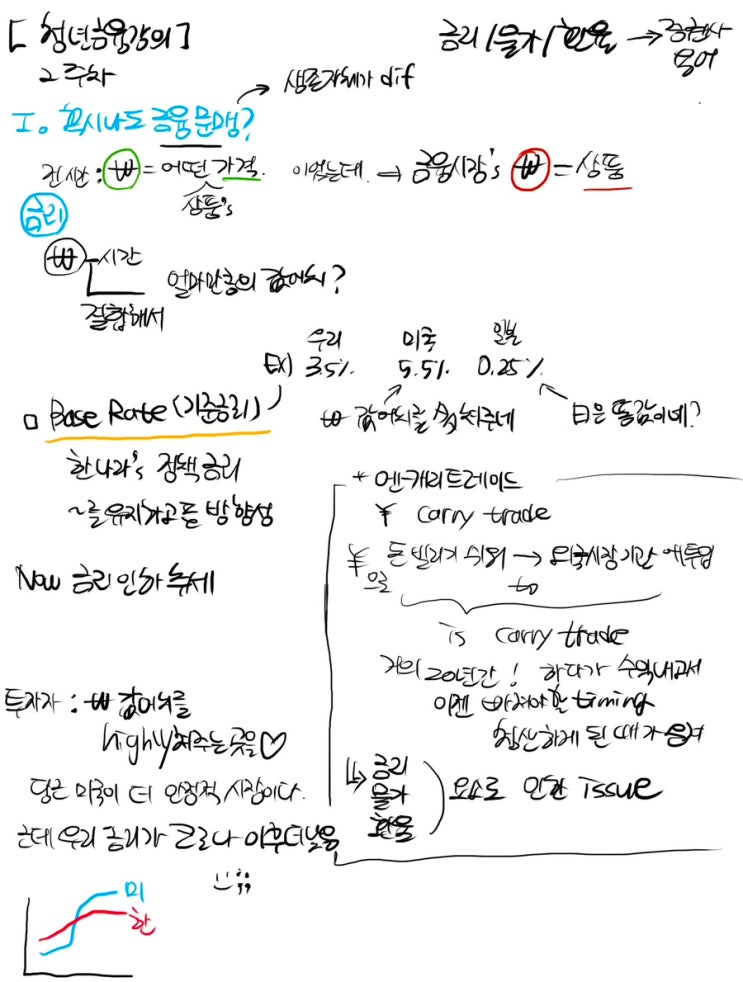 [ 청년금융강의 ]
2주차
금리/물가/환율 → 증권사
용어
I. 혹시나도 금융문맹? → 생존자체가 dif
전시간 : ₩ = 어떤 가격. 이었는데. ⇒ 금융시장's ₩ = 상품
상품's
금리
₩ 시간
결합해서 얼마만큼의 값어치?
우리 미국 일본
EX) 3.5% 5.5% 0.25%
□ Base Rate (기준금리)
₩ 값어치를 쳐주네
日은 똥값이네?
한나라's 정책금리
~를 유지가고를 방향성
Now 금리인하 추세
* 엔-캐리트레이드
¥ carry trade
¥으로 돈 빌리기 쉬워 → 외국시장기관에투입
to
is carry trade
거의 20년간! 하다가 수익내고서
이젠 빠져야할 timing
청산하게 된 때가
↳ 금리
물가
환율
요소로 인한 issue
투자자 : ₩ 값어치를
highly쳐주는곳을♡
당근 미국이 더 안정적 시장이다.
근데 우리 금리가 코로나 이후 더 낮음
미
한